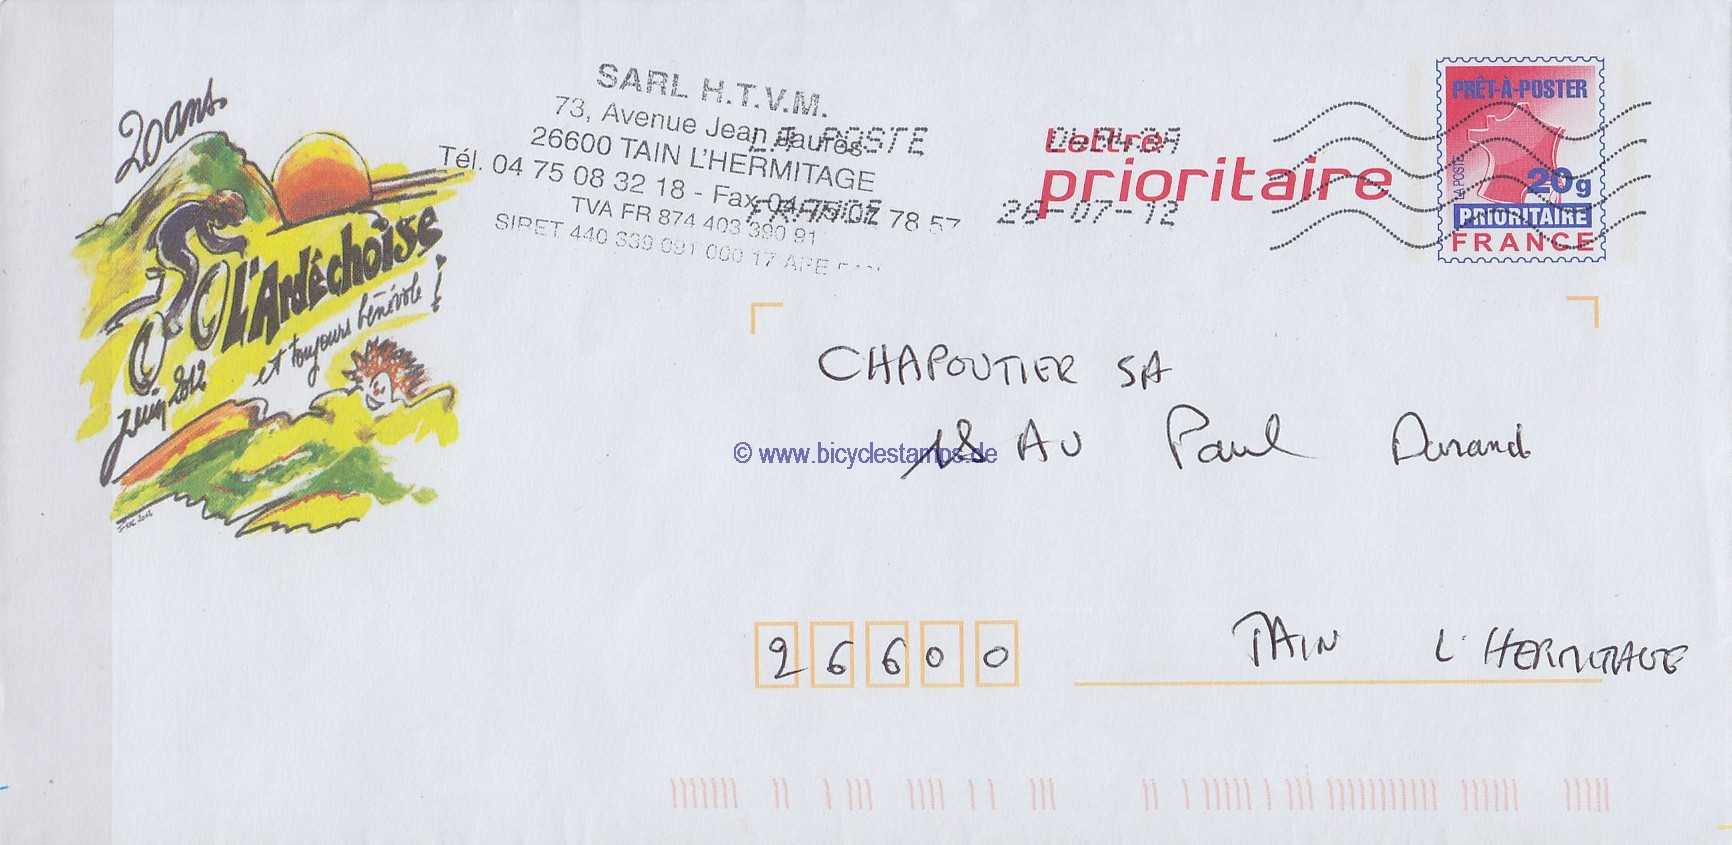 20 ans
L'Ardéchoise
et toujours bénévole !
Juin 2012
SARL H.T.V.M.
73, Avenue Jean Jaurès
26600 TAIN L'HERMITAGE
Tél. 04 75 08 32 18 - Fax 04 75 07 78 57
TVA FR 874 403 390 91
SIRET 440 339 091 000 17 APE
LA POSTE
FRANCE
26-07-12
Lettre
prioritaire
PRÊT-À-POSTER
LA POSTE
20g
PRIORITAIRE
FRANCE
CHAPOUTIER SA
18 AU Paul Durand
© www.bicyclestamps.de
26600 TAIN L'HERMITAGE